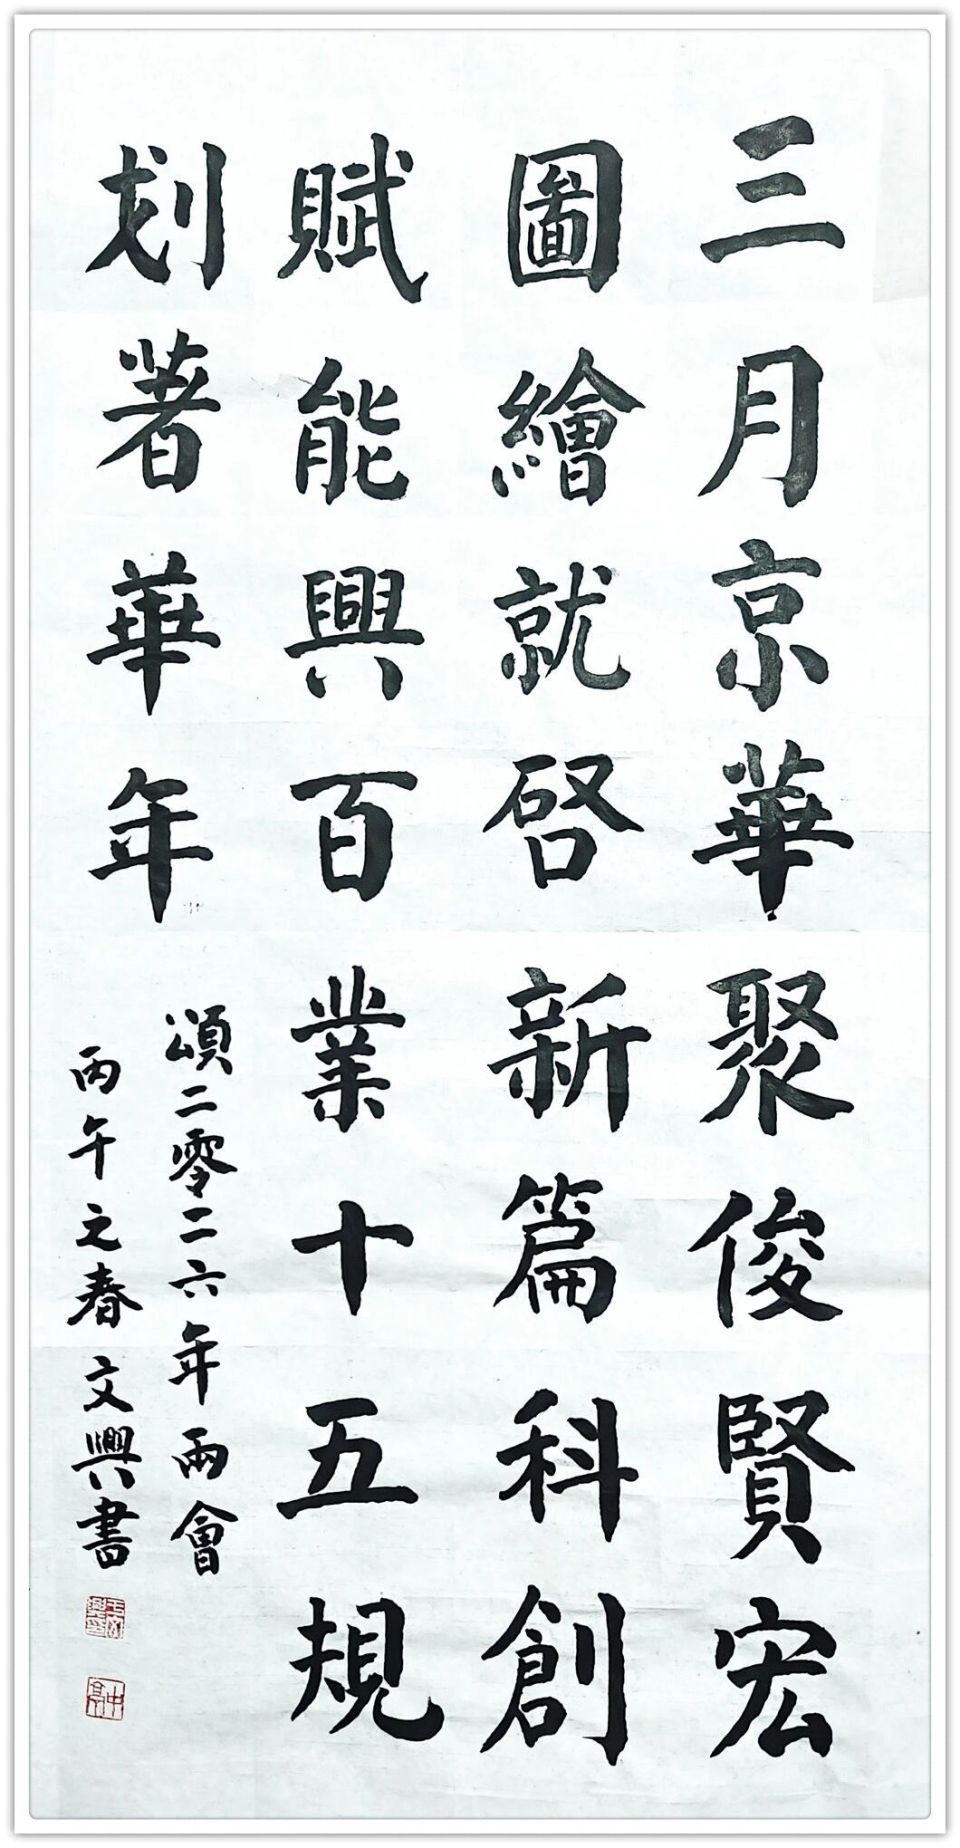 三月京華聚俊賢宏
圖繪就啓新篇科創
賦能興百業十五規
划著華年
頌二零二六年兩會
丙午之春 文興書